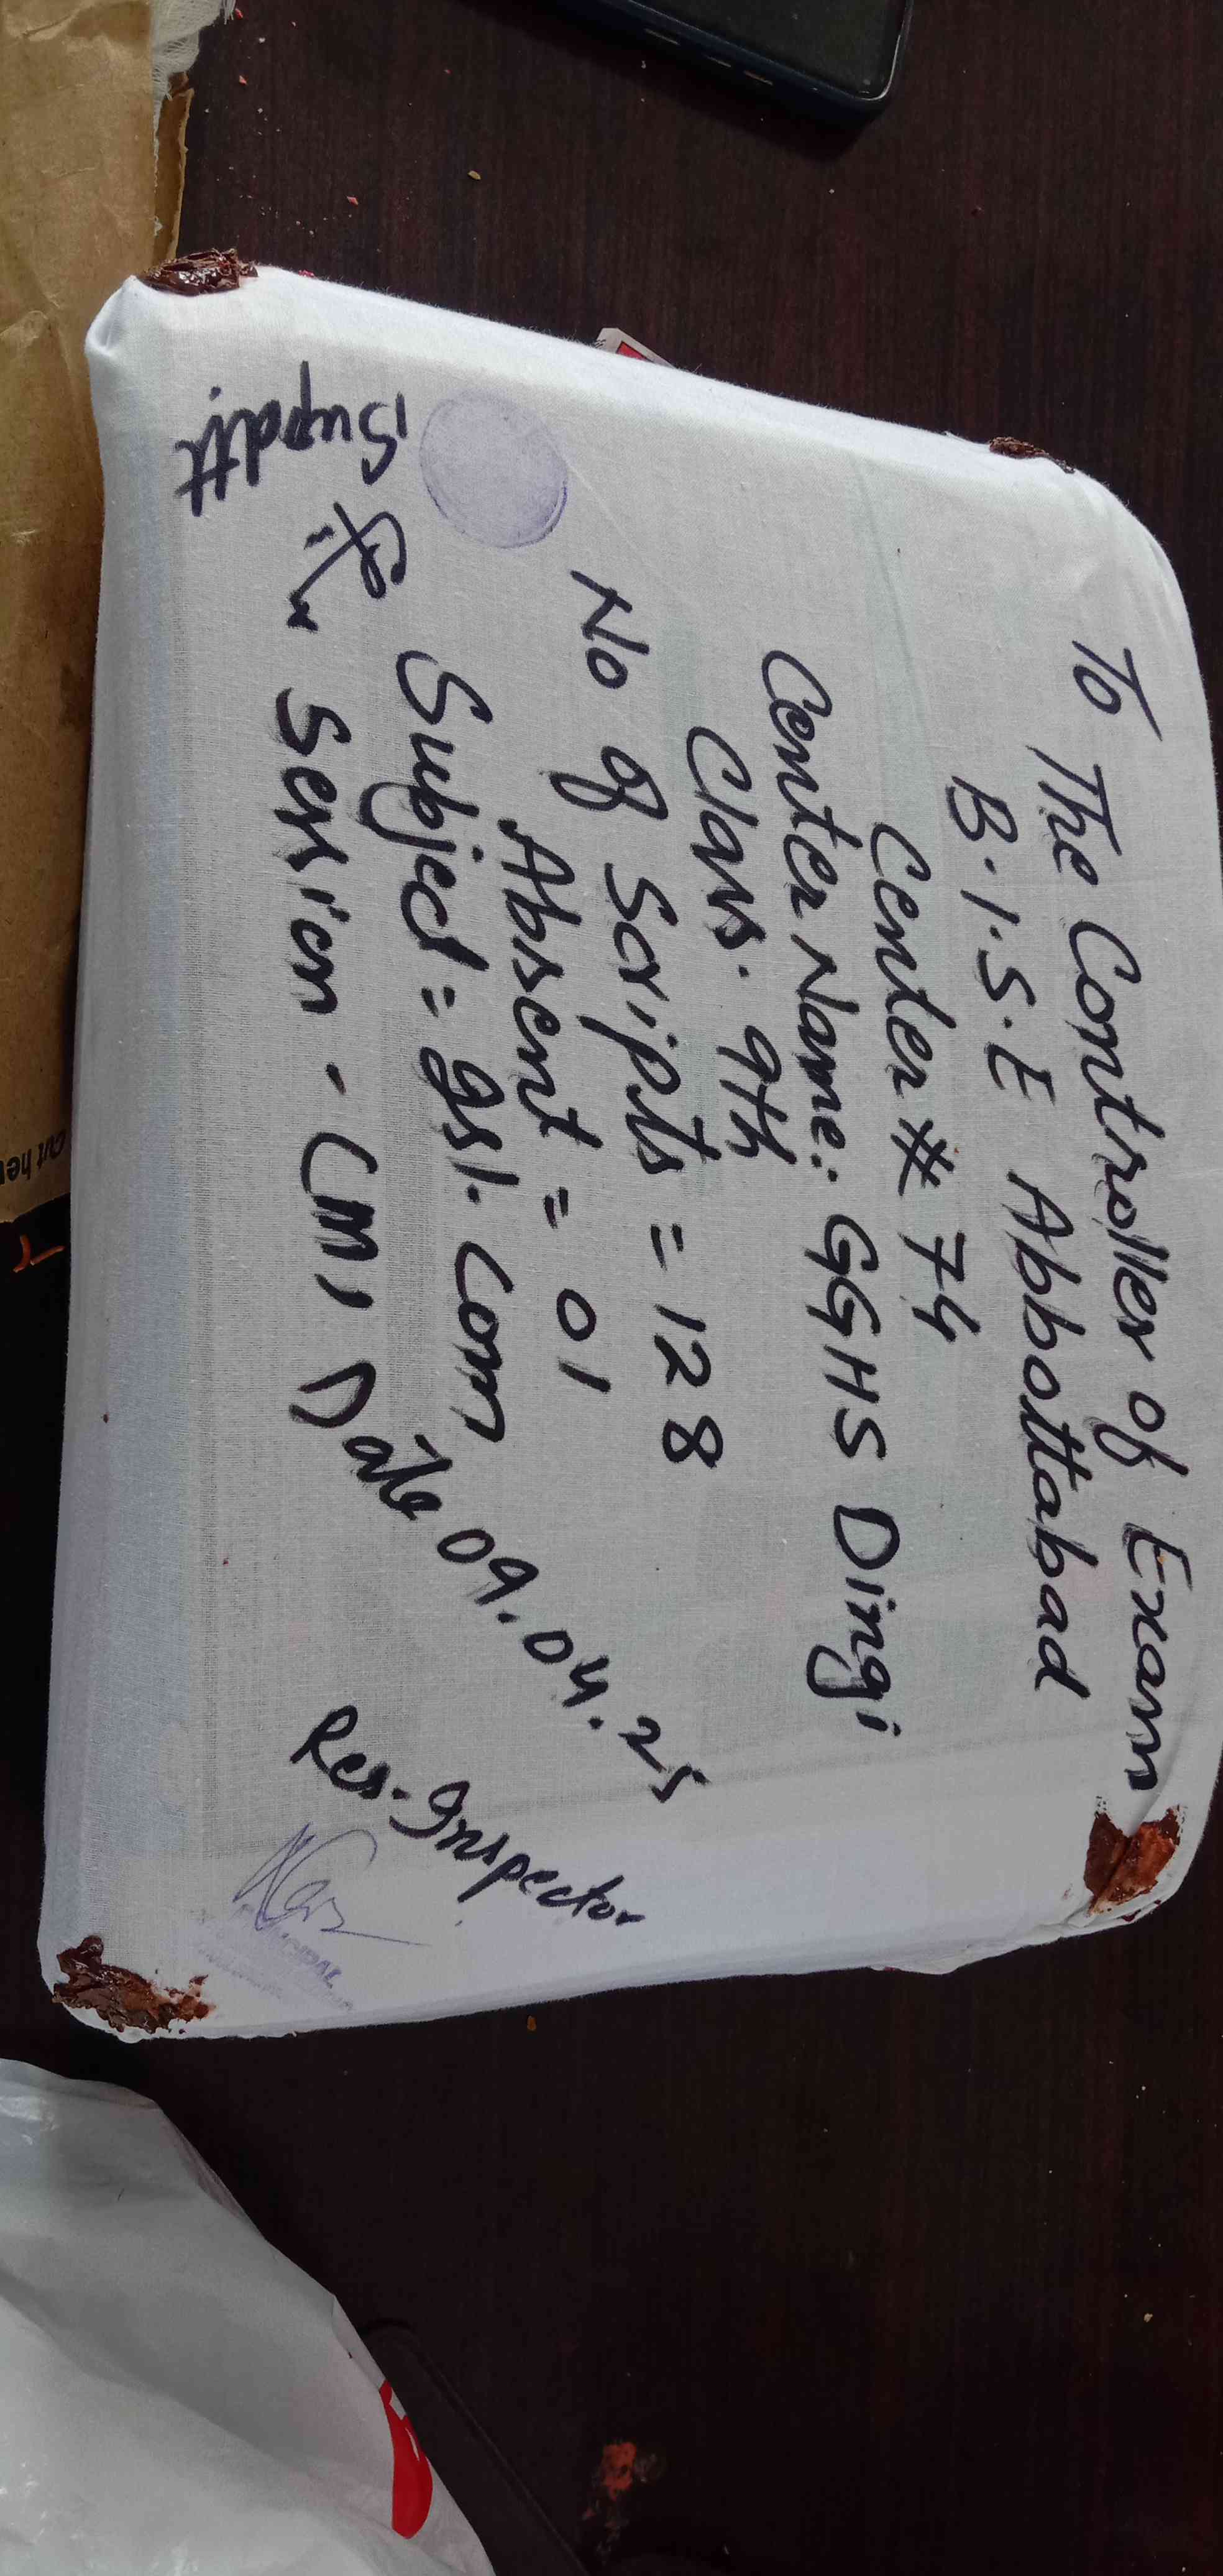 To The Controller of Exam
B.I.S.E Abbottabad
Center # 74
Center Name: GGHS Dingi
Class. 9th
No of Scripts = 128
Absent = 01
Subject = Isl. Com
Session - (M)
Date 09.04.25
Supdtt.
Res-Inspector
Cut her